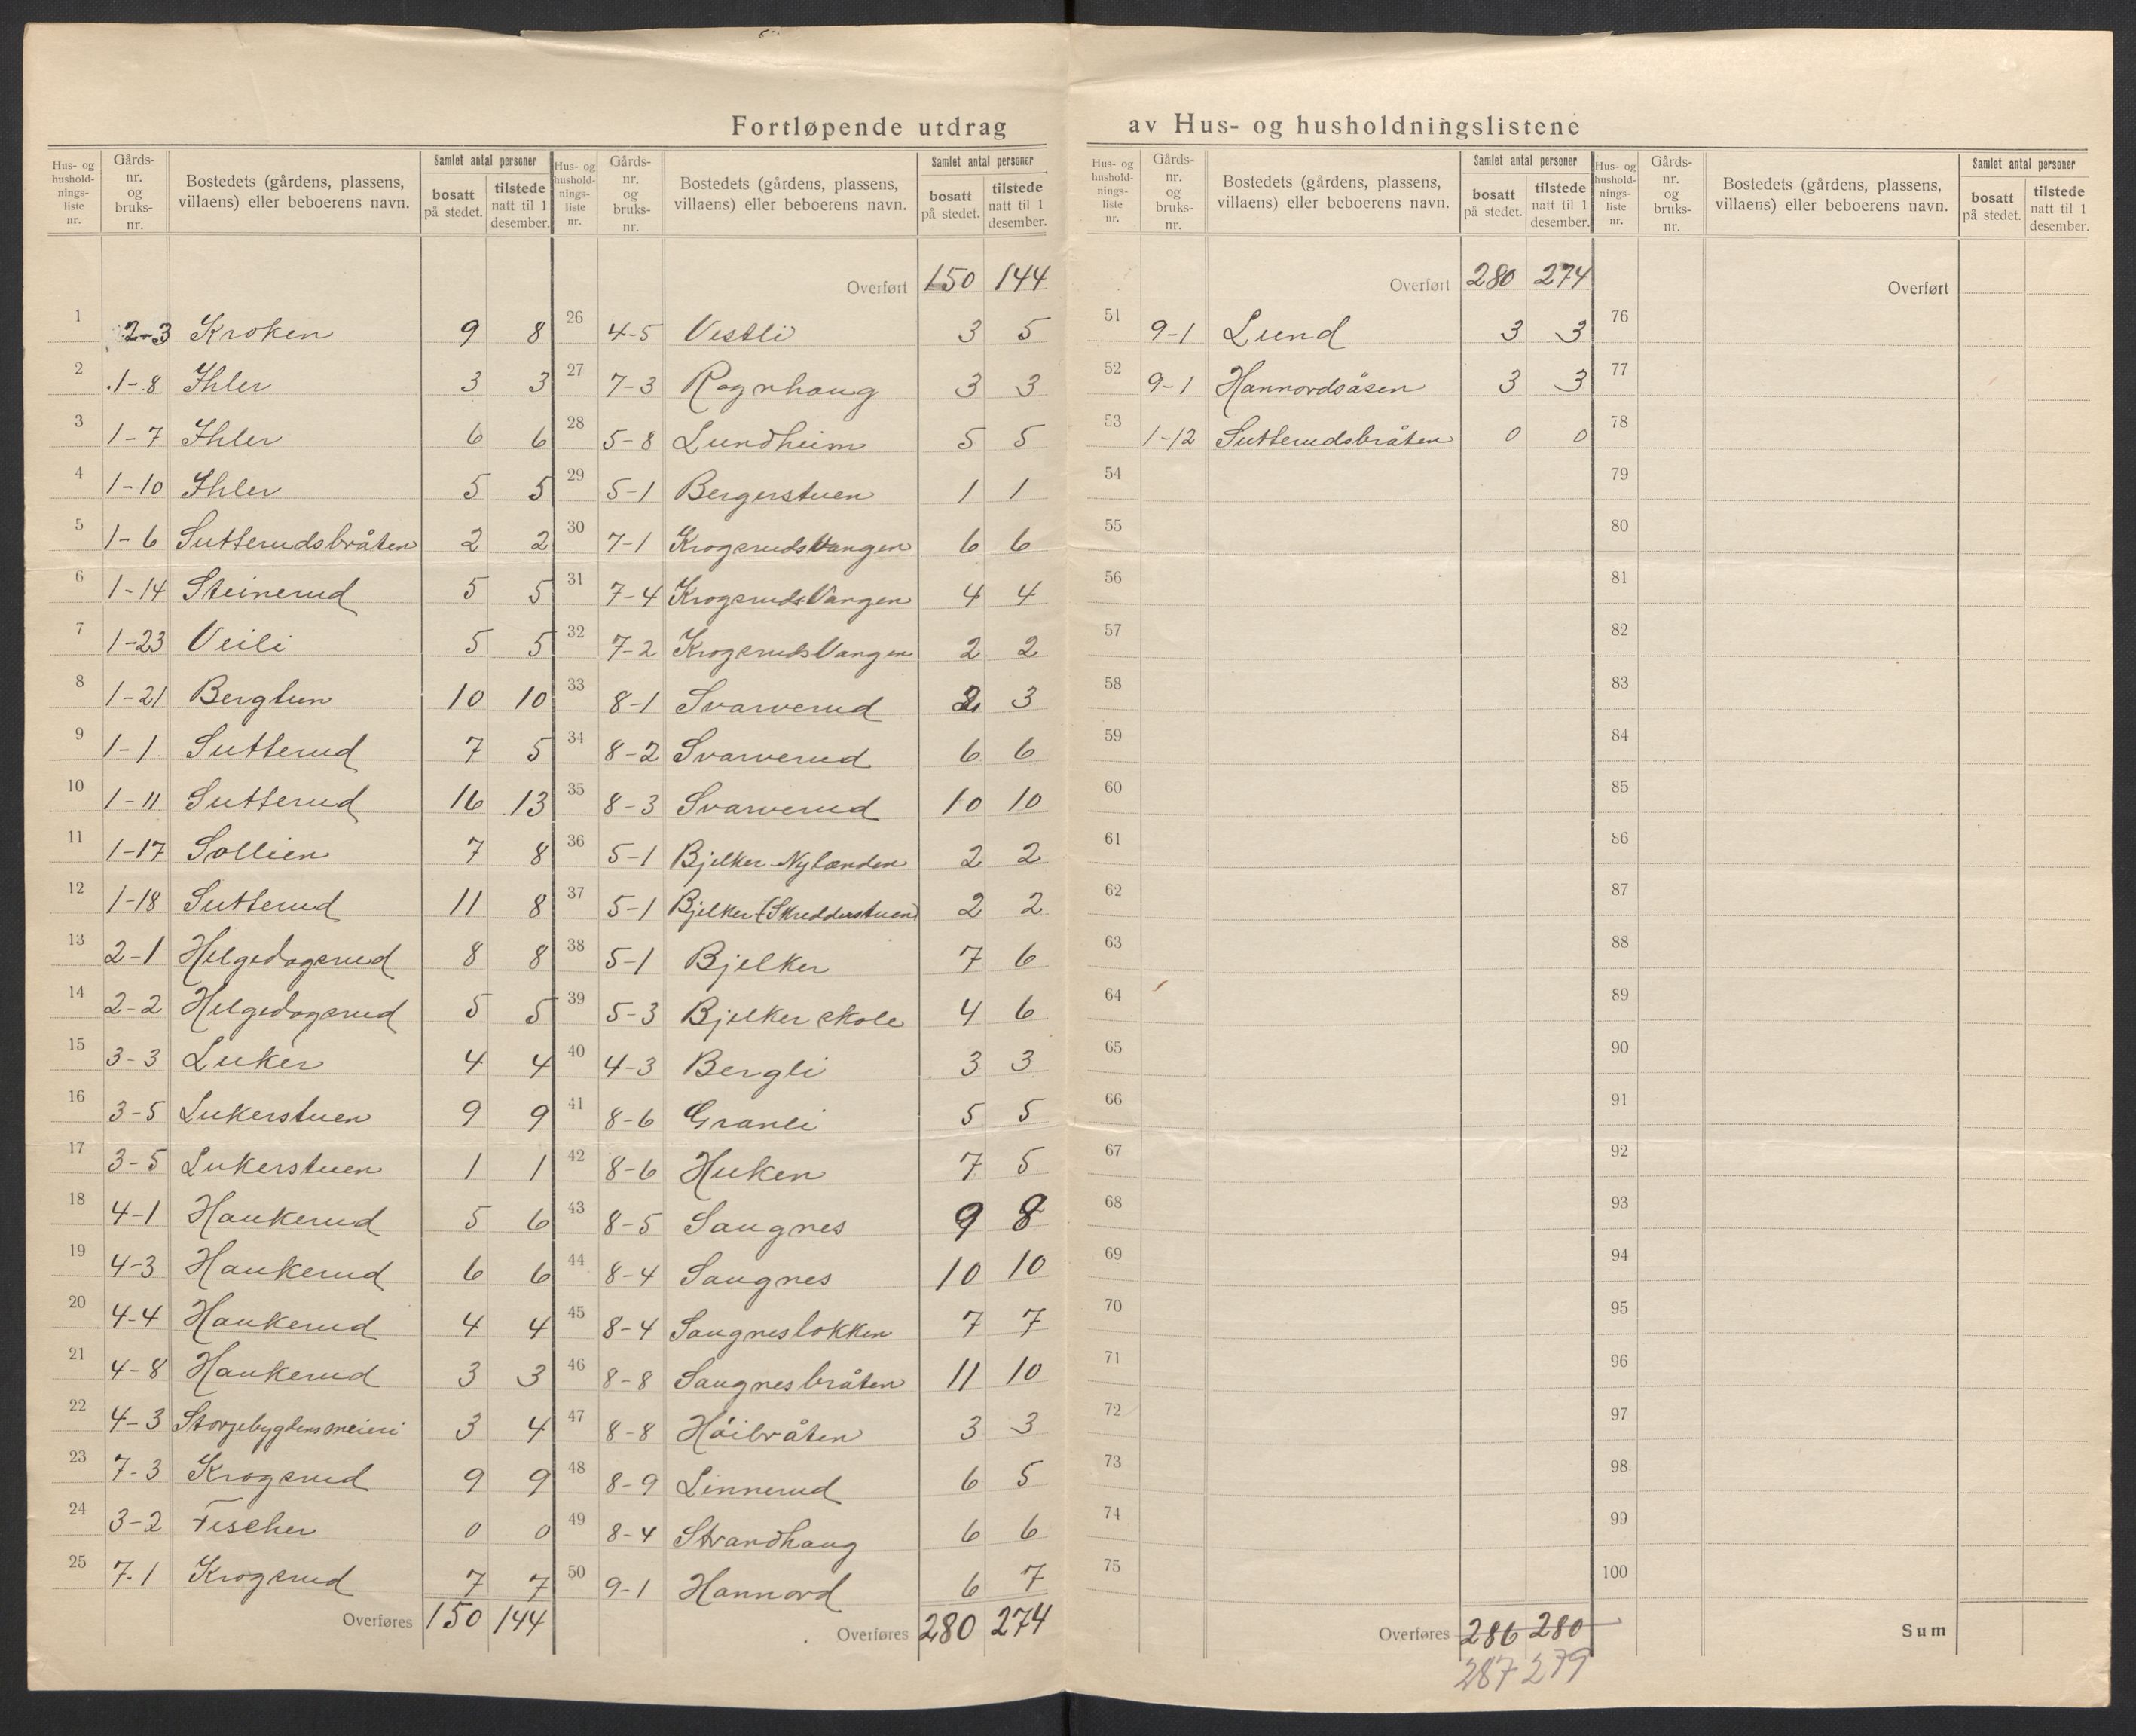 Fortløpende utdrag av Hus- og husholdningslistene
Hus- og husholdningsliste nr. | Gårds-nr. og bruks-nr. | Bostedets (gårdens, plassens, villaens) eller beboerens navn. | Samlet antal personer | bosatt på stedet. | tilstede natt til 1 desember.
1 2-3 Kroken 9 8
2 1-8 Ihler 3 3
3 1-7 Ihler 6 6
4 1-10 Ihler 5 5
5 1-6 Sutterudsbråten 2 2
6 1-14 Steinerud 5 5
7 1-23 Veili 5 5
8 1-21 Berglun 10 10
9 1-1 Sutterud 7 5
10 1-11 Sutterud 16 13
11 1-17 Sollien 7 8
12 1-18 Sutterud 11 8
13 2-1 Helgedagsrud 8 8
14 2-2 Helgedagsrud 5 5
15 3-3 Luker 4 4
16 3-5 Lukerstuen 9 9
17 3-5 Lukerstuen 1 1
18 4-1 Haukerud 5 6
19 4-3 Haukerud 6 6
20 4-4 Haukerud 4 4
21 4-8 Haukerud 3 3
22 4-3 Storjebygdens meieri 3 4
23 7-3 Krogsrud 9 9
24 3-2 Fischer 0 0
25 7-1 Krogsrud 7 7
Overføres 150 144
Hus- og husholdningsliste nr. | Gårds-nr. og bruks-nr. | Bostedets (gårdens, plassens, villaens) eller beboerens navn. | Samlet antal personer | bosatt på stedet. | tilstede natt til 1 desember.
Overført 150 144
26 4-5 Vestli 3 5
27 7-3 Rognhaug 3 3
28 5-8 Lundheim 5 5
29 5-1 Bergerstuen 1 1
30 7-1 KrogsrudsVangen 6 6
31 7-4 KrogsrudsVangen 4 4
32 7-2 KrogsrudsVangen 2 2
33 8-1 Svarverud 3
34 8-2 Svarverud 6 6
35 8-3 Svarverud 10 10
36 5-1 Bjelker Nylænden 2 2
37 5-1 Bjelker (Skredderstuen) 2 2
38 5-1 Bjelker 7 6
39 5-3 Bjelker skole 4 6
40 4-3 Bergli 3 3
41 8-6 Granli 5 5
42 8-6 Huken 7 5
43 8-5 Saugnes 9 8
44 8-4 Saugnes 10 10
45 8-4 Saugnesløkken 7 7
46 8-8 Saugnesbråten 11 10
47 8-8 Höibråten 3 3
48 8-9 Linnerud 6 5
49 8-4 Strandhaug 6 6
50 9-1 Hannord 6 7
Overføres 280 274
Hus- og husholdningsliste nr. | Gårds-nr. og bruks-nr. | Bostedets (gårdens, plassens, villaens) eller beboerens navn. | Samlet antal personer | bosatt på stedet. | tilstede natt til 1 desember.
Overført 280 274
51 9-1 Lund 3 3
52 9-1 Hannordsåsen 3 3
53 1-12 Sutterudsbråten 0 0
54
55
56
57
58
59
60
61
62
63
64
65
66
67
68
69
70
71
72
73
74
75
Overføres 286 280
287 279
Hus- og husholdningsliste nr. | Gårds-nr. og bruks-nr. | Bostedets (gårdens, plassens, villaens) eller beboerens navn. | Samlet antal personer | bosatt på stedet. | tilstede natt til 1 desember.
Overført
76
77
78
79
80
81
82
83
84
85
86
87
88
89
90
91
92
93
94
95
96
97
98
99
100
Sum